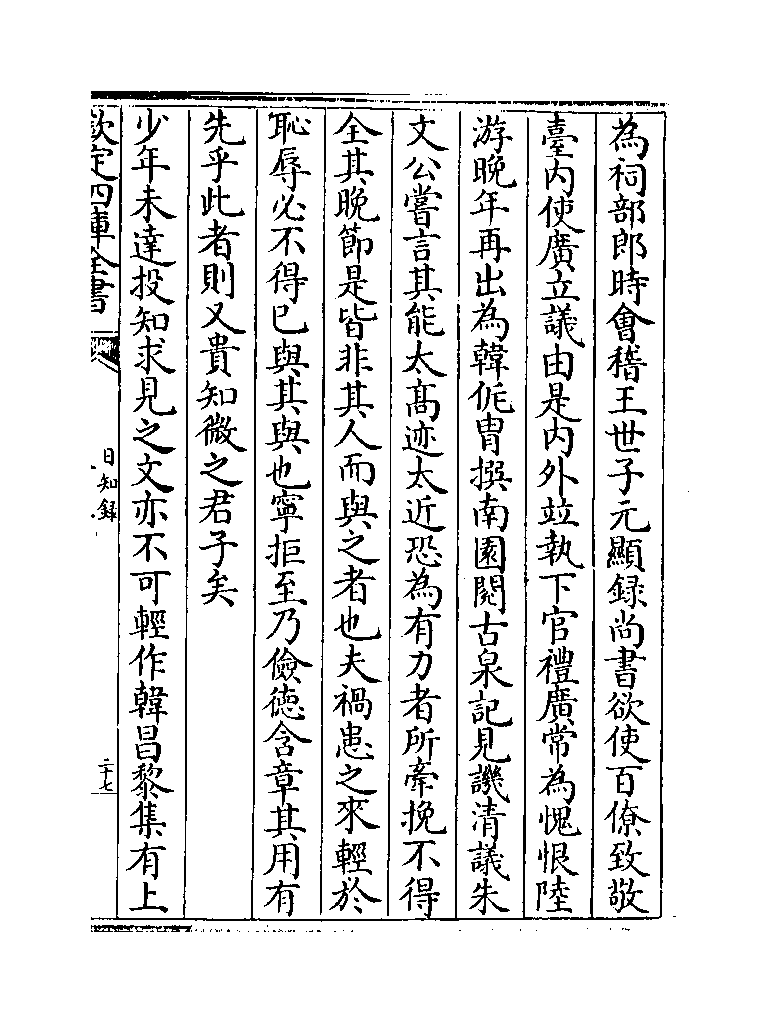 為祠部郎時會稽王世子元顯録尚書欲使百僚致敬
臺内使廣立議由是内外竝執下官禮廣常為愧恨陸
游晚年再出為韓侂胄撰南園閱古泉記見譏清議朱
文公嘗言其能太髙迹太近恐為有力者所牽挽不得
全其晚節是皆非其人而與之者也夫禍患之來輕於
恥辱必不得已與其與也寧拒至乃儉徳含章其用有
先乎此者則又貴知微之君子矣
少年未達投知求見之文亦不可輕作韓昌黎集有上
欽定四庫全書
日知録
二十七